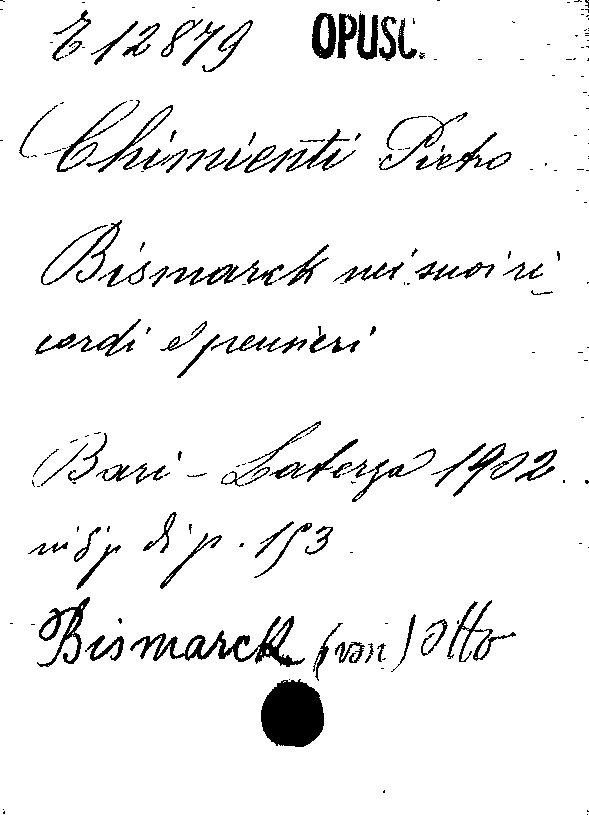 E 12879 OPUSC.
Chimienti Pietro
Bismarck nei suoi ri_
cordi e pensieri
Bari - Laterza 1902
in 8 p. di p. 153
Bismarck (von) Otto